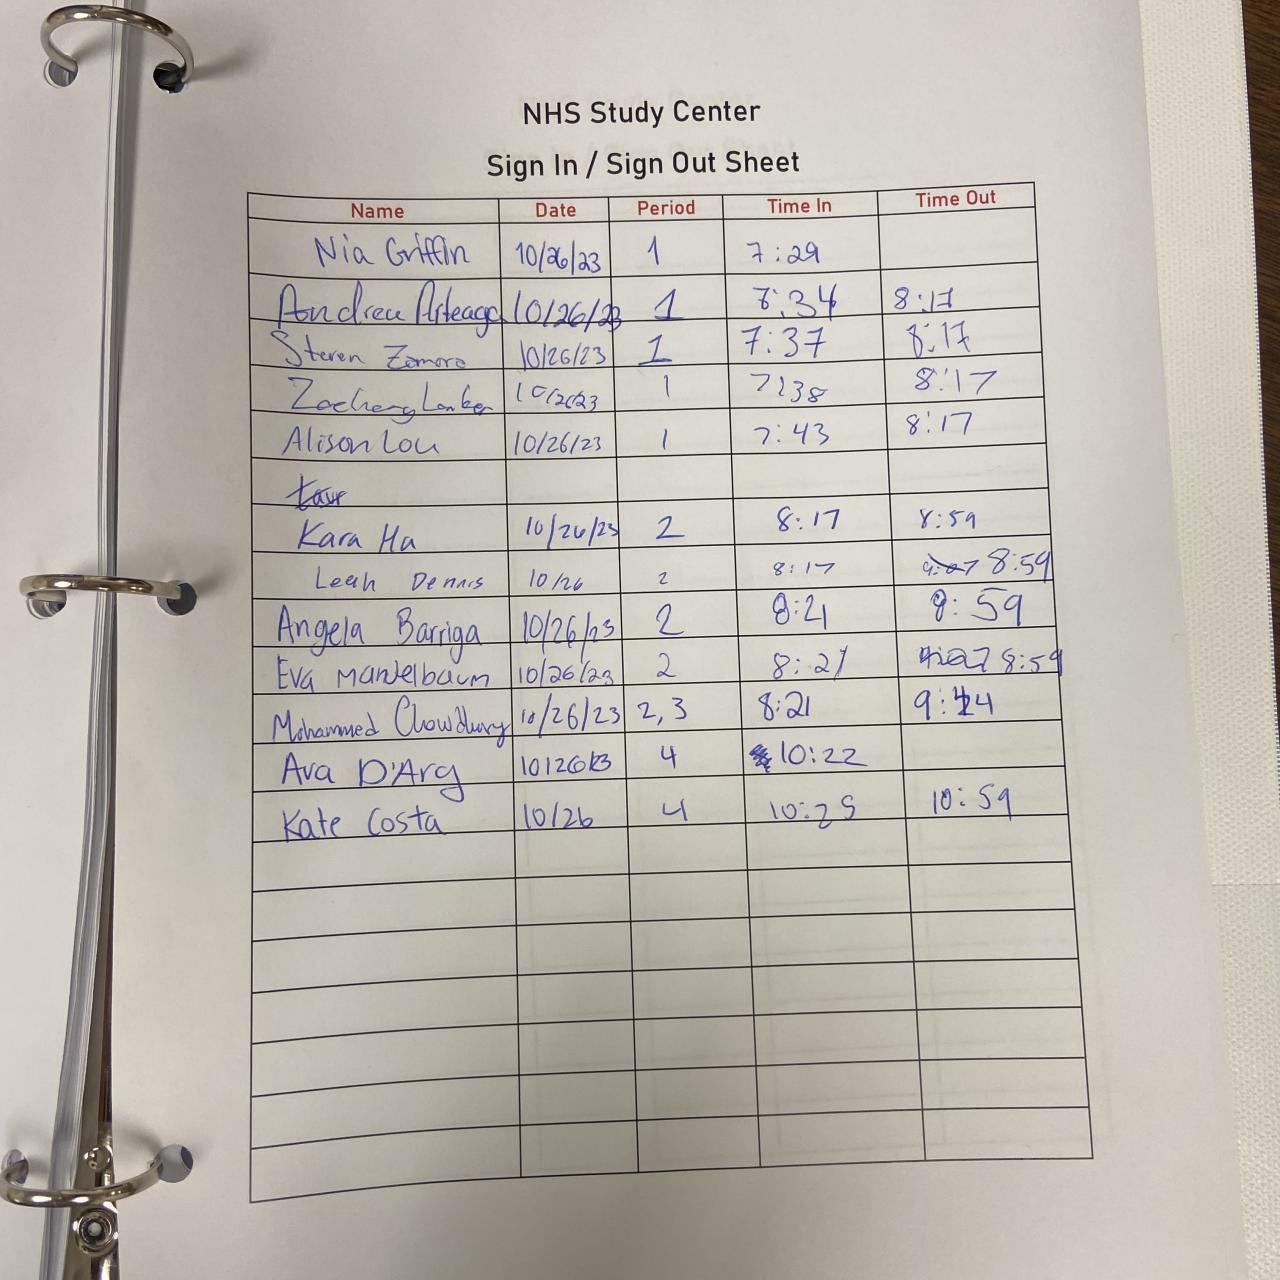 NHS Study Center
Sign In / Sign Out Sheet
Name Date Period Time In Time Out
Nia Griffin 10/26/23 1 7:29
Andrea Arteaga 10/26/23 1 7:34 8:17
Steven Zamora 10/26/23 1 7:37 8:17
Zachery 10/26/23 1 7:38 8:17
Alison Lou 10/26/23 1 7:43 8:17
Kara Ha 10/26/23 2 8:17 8:59
Leah Dennis 10/26 2 8:17 8:59
Angela Barriga 10/26/23 2 8:21 8:59
Eva Mandelbaum 10/26/23 2 8:21 8:59
Mohammed Chowdhury 10/26/23 2,3 8:21 9:44
Ava D'Arg 10/26/23 4 10:22
Kate Costa 10/26 4 10:25 10:59